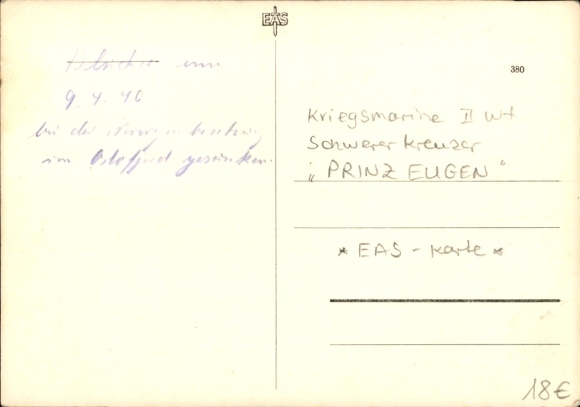 EAS
am
9.4.40
bei der Norwegenbesetzung
im Oslofjord gesunken.
380
Kriegsmarine II Wk
Schwerer Kreuzer
„PRINZ EUGEN"
* EAS - Karte *
18€